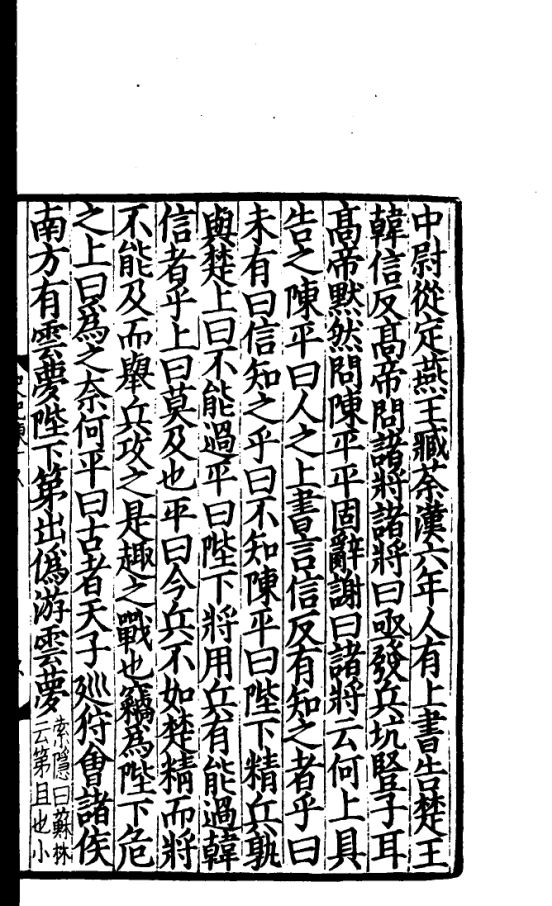 中尉從定燕王臧荼漢六年人有上書告楚王
韓信反髙帝問諸將諸將曰亟發兵坑豎子耳
髙帝黙然問陳平平固辭謝曰諸將云何上具
告之陳平曰人之上書言信反有知之者乎曰
未有曰信知之乎曰不知陳平曰陛下精兵孰
與楚上曰不能過平曰陛下將用兵有能過韓
信者乎上曰莫及也平曰今兵不如楚精而將
不能及而舉兵攻之是趣之戰也竊為陛下危
之上曰為之奈何平曰古者天子廵狩會諸侯
南方有雲夢陛下第出僞游雲夢
索隱曰蘇林
云第且也小